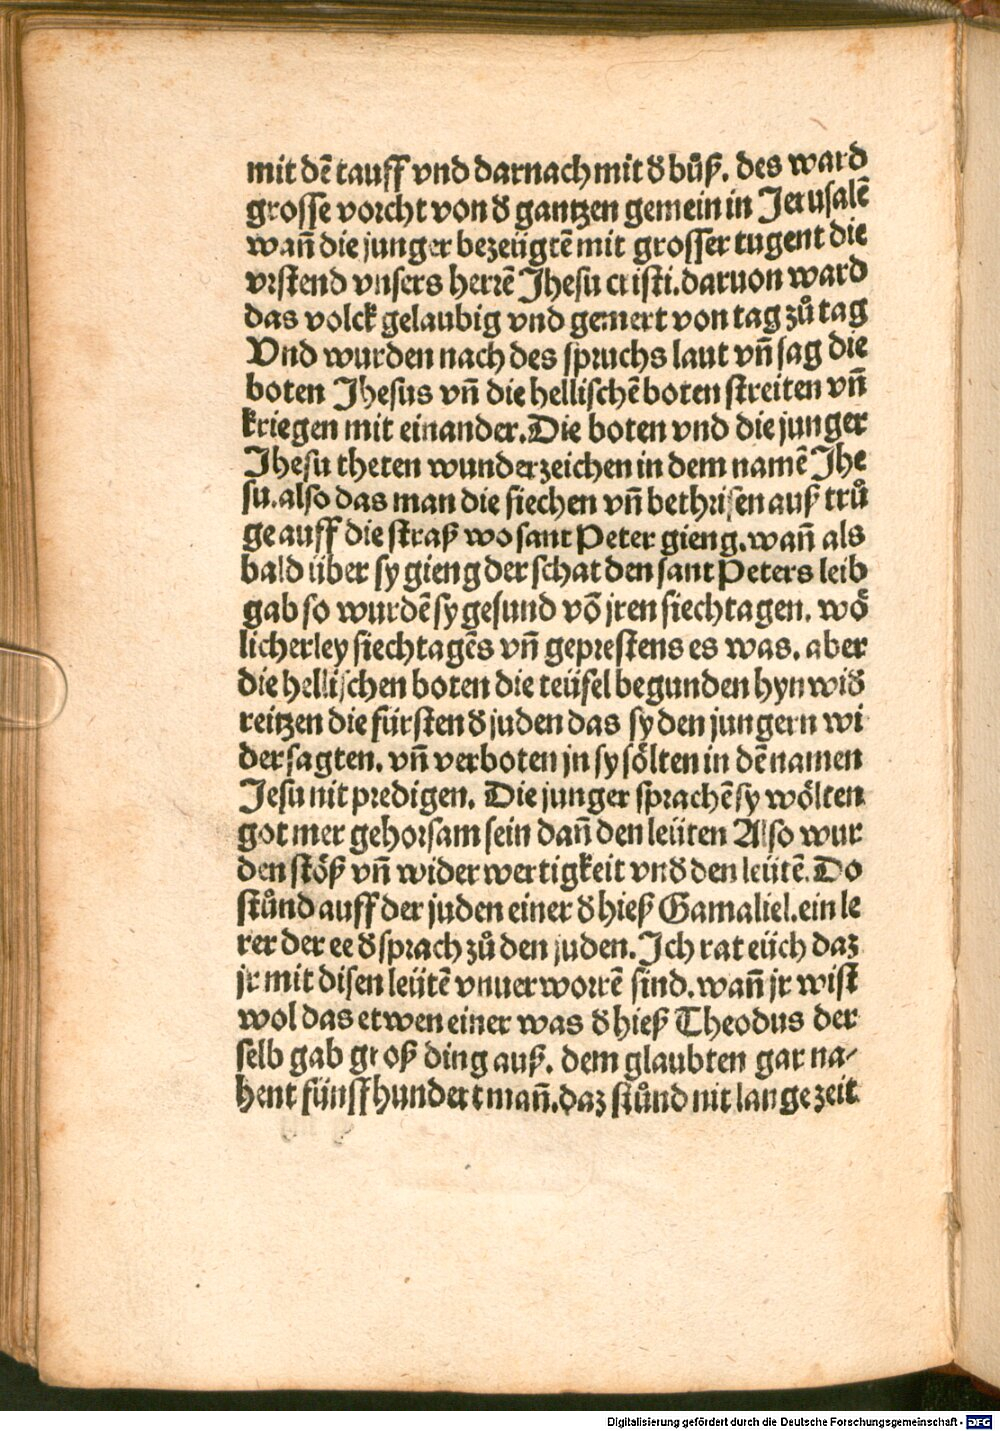 mit dē tauff vnd darnach mit đ bůß. des ward
grosse vorcht von đ gantzen gemein in Jerusalē
wañ die junger bezeügtē mit grosser tugent die
vrstend vnsers herrē Jhesu cristi. daruon ward
das volck gelaubig vnd gemert von tag zů tag
Vnd wurden nach des spruchs laut vñ sag die
boten Jhesus vñ die hellischē boten streiten vñ
kriegen mit einander. Die boten vnd die junger
Jhesu theten wunderzeichen in dem namē Jhe
su. also das man die siechen vñ bethrisen auß trů
ge auff die straß wo sant Peter gieng. wañ als
bald über sy gieng der schat den sant Peters leib
gab so wurdē sy gesund vō jren siechtagen. wö
licherley siechtagēs vñ geprestens es was. aber
die hellischen boten die teüfel begunden hyn wiđ
reitzen die fürsten đ juden das sy den jungern wi
dersagten. vñ verboten jn sy sölten in dē namen
Jesu nit predigen. Die junger sprachē sy wölten
got mer gehorsam sein dañ den leüten Also wur
den stöß vñ wider wertigkeit vnđ den leütē. Do
stůnd auff der juden einer đ hieß Gamaliel. ein le
rer der ee đ sprach zů den juden. Ich rat eüch daz
jr mit disen leütē vnuerworrē sind. wañ jr wist
wol das etwen einer was đ hieß Theodus der
selb gab groß ding auß. dem glaubten gar na-
hent fünffhundert mañ. daz stůnd nit lange zeit
Digitalisierung gefördert durch die Deutsche Forschungsgemeinschaft - DFG